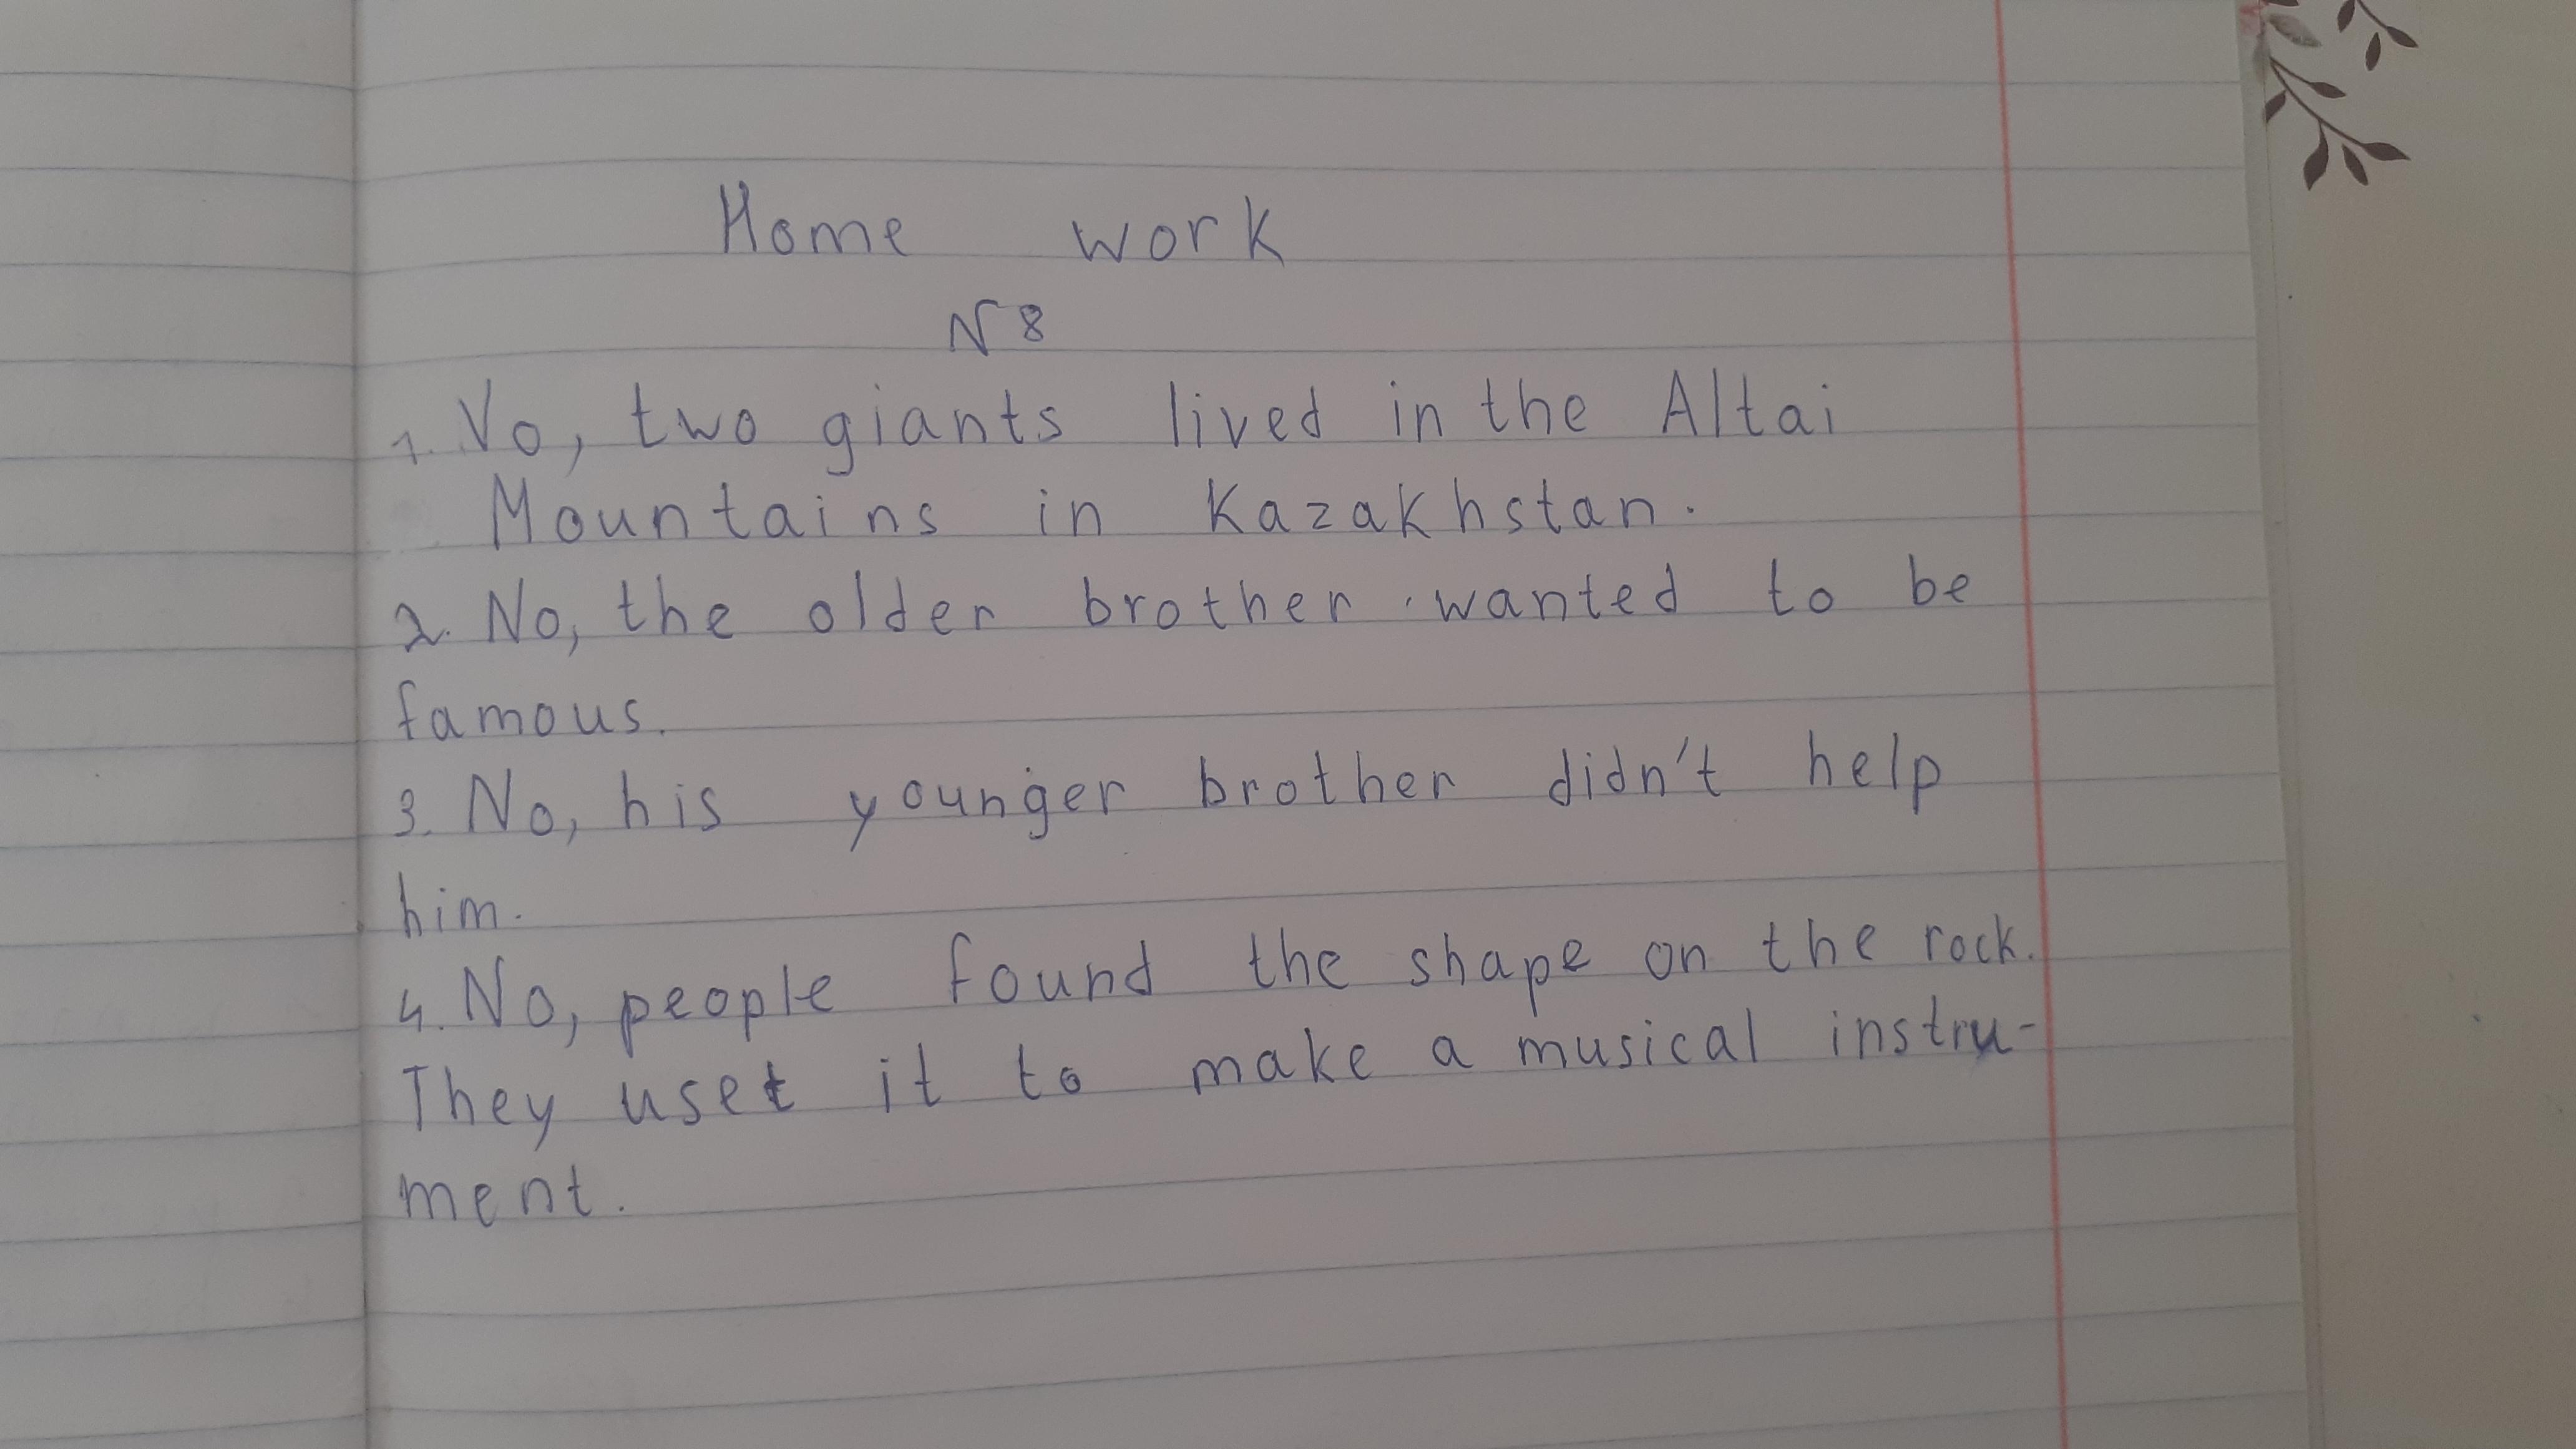 Home work
N 8
1. No, two giants lived in the Altai
Mountains in Kazakhstan.
2. No, the older brother wanted to be
famous.
3. No, his younger brother didn't help
him.
4. No, people found the shape on the rock.
They uset it to make a musical instru-
ment.